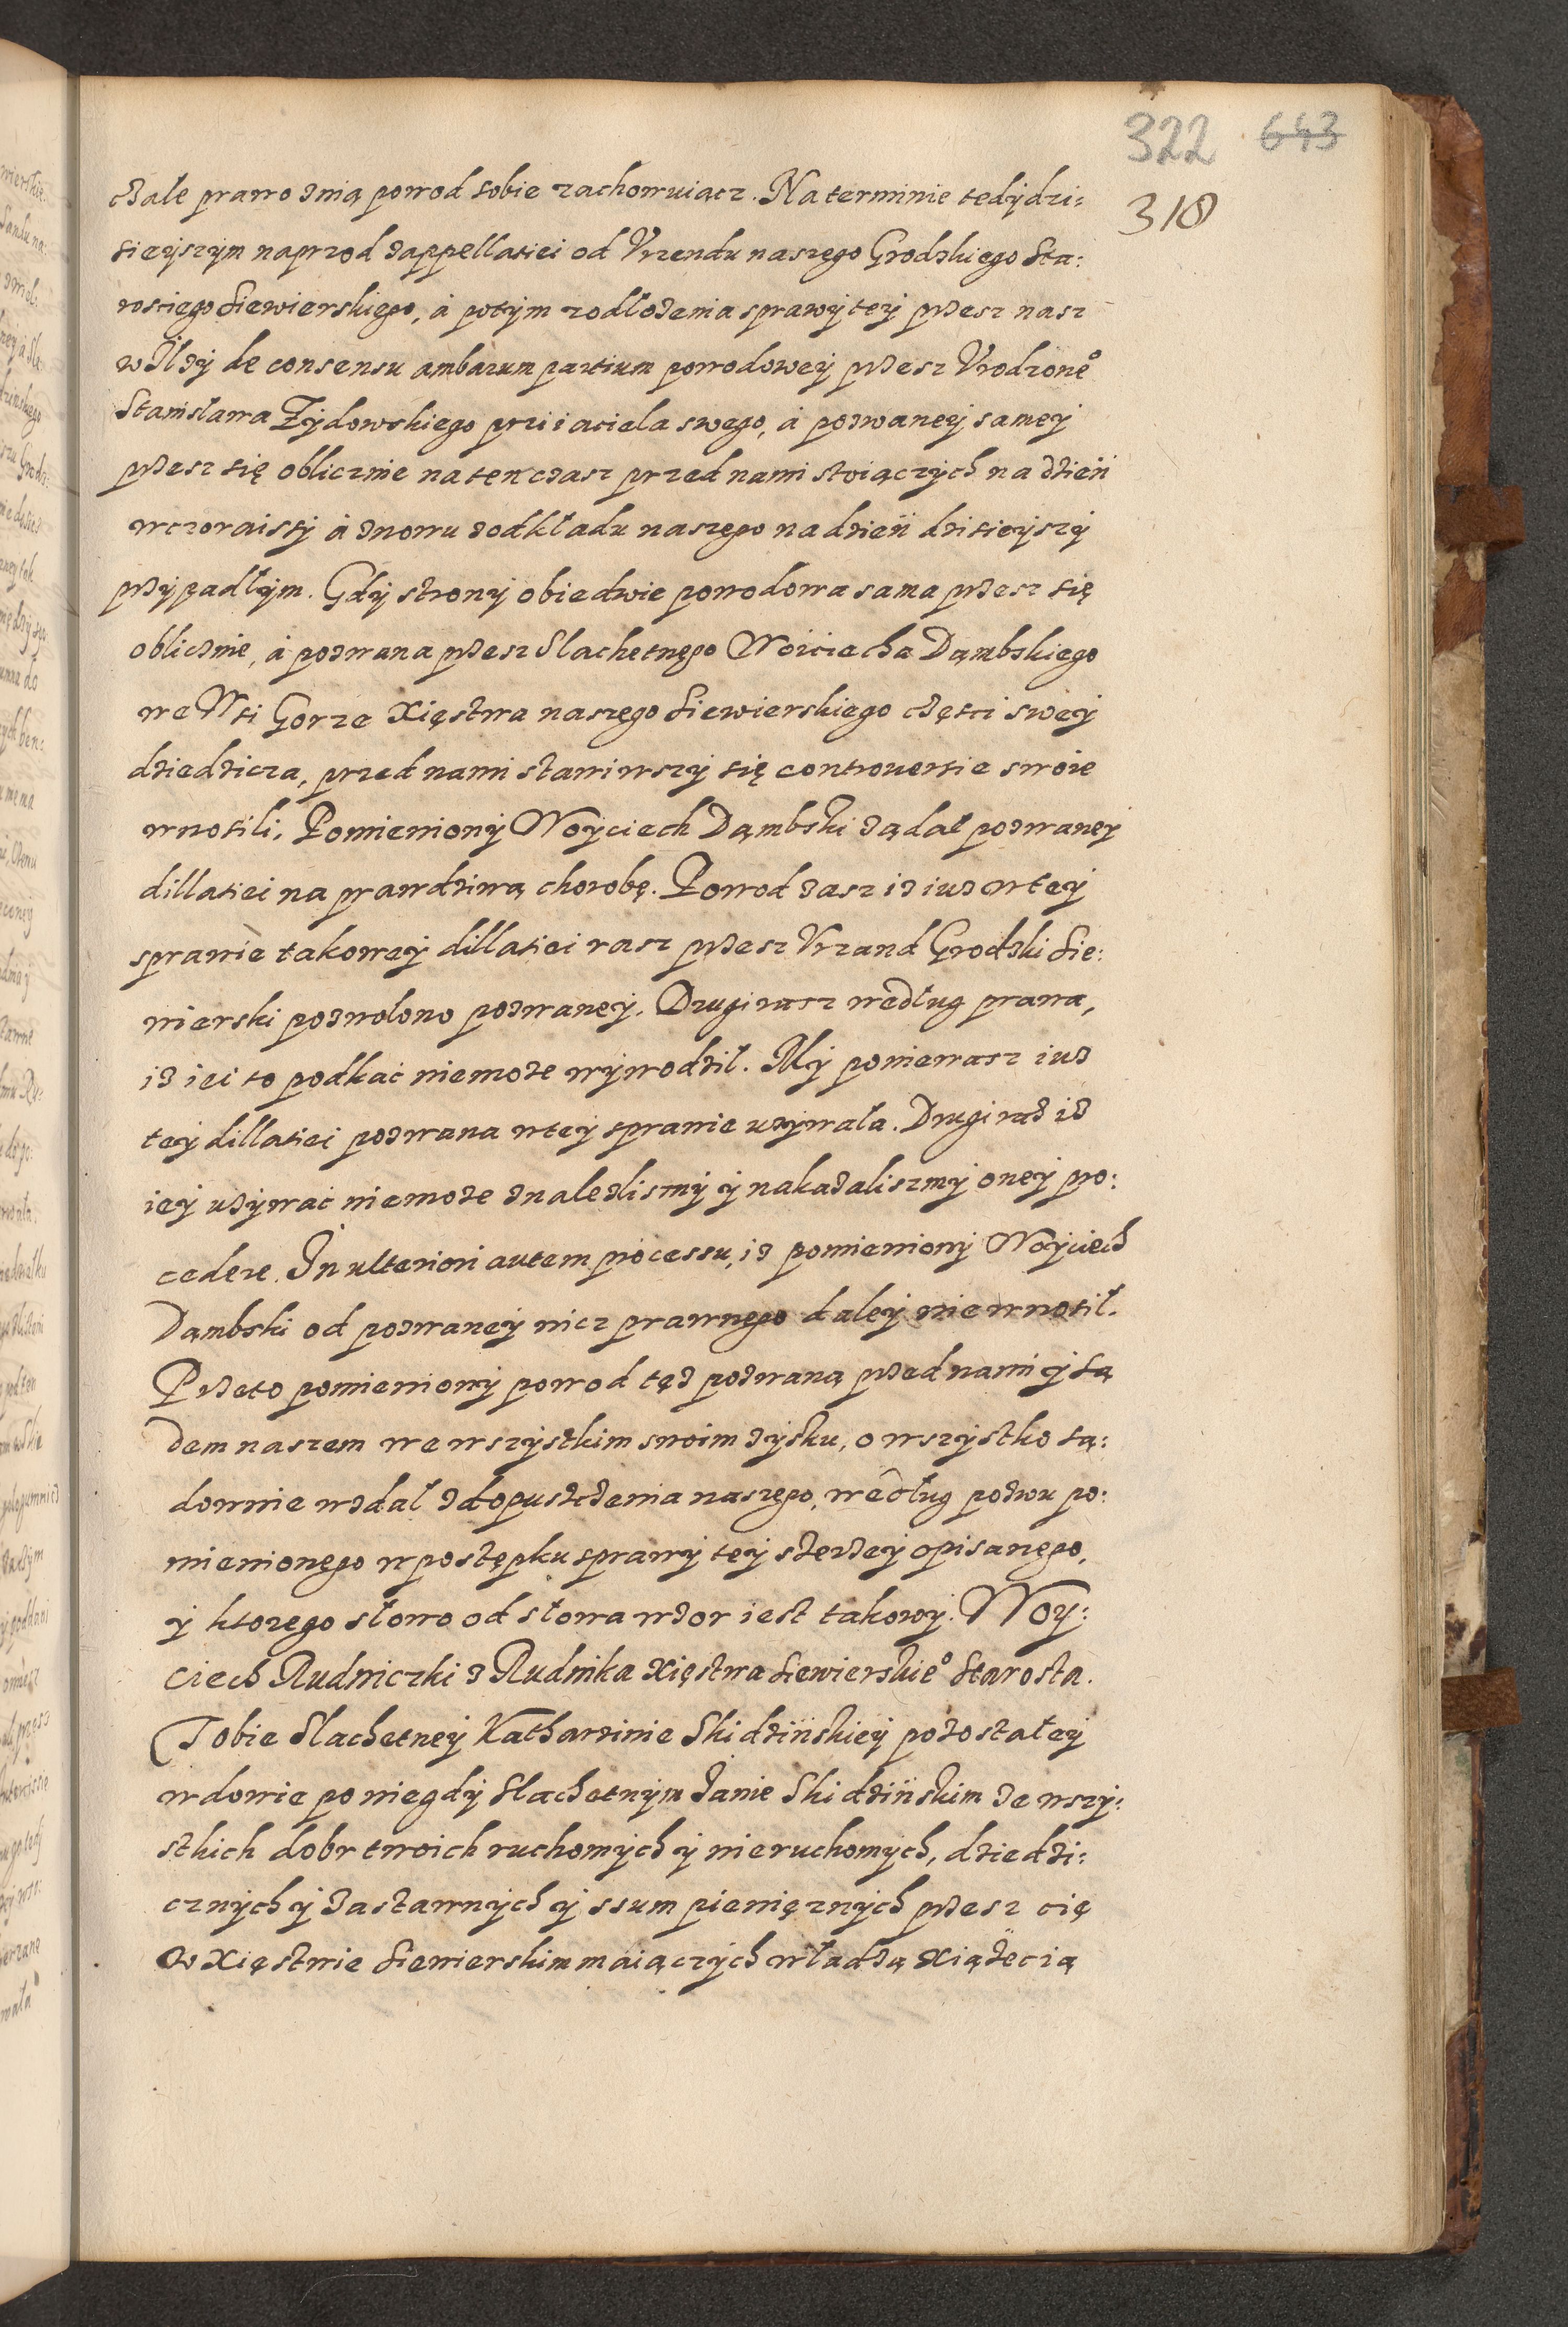 322 643
318
czale prawo znią powod sobie zachowuiącz. Na terminie tedy dzi:
sieyszym naprzod zappellatiei od Vrzendu naszego Grodzkiego Sta:
rosciego Siewierskiego, á potym zodłozenia sprawy tey przesz nasz
w Ilzy de consensu ambarum partium powodowey przesz Vrodzone°
Stanisława Zydowskiego prziiaciela swego, á pozwaney samey
przesz się oblicznie na ten czasz przed nami stoiączych na dzień
wczoraisty á znowu zodkładu naszego na dzień dzisieyszy
przypadłym. Gdy strony obiedwie powodowa sama przesz się
oblicznie, á pozwana przesz Slachetnego Woiciecha Dąmbskiego
we Wsi Gorze Xięstwa naszego Siewierskiego częsci swey
dziedzicza, przed nami stawiwszy się controuersie swoie
wnosili. Pomieniony Woyciech Dąmbski ządał pozwaney
dillatiei na prawdziwą chorobę. Powod zasz iz iuz wtey
sprawie takowey dillatiei rasz przesz Vrzand Grodzki Sie:
wierski pozwolono pozwaney. Drugi rasz według prawa,
iz iei to podkać niemoze wywodził. My poniewasz iuz
tey dillatiei pozwana wtey sprawie uzywała. Drugi raz iz
iey uzywać niemoze znalezlismy y nakazaliszmy oney pro:
cedere. In ulteriori autem processu, iz pomieniony Woyciech
Dąmbski od pozwaney nicz prawnego daley nie wnosił.
Przeto pomieniony powod tęz pozwaną przed nami y są
dem naszem we wszystkim swoim zysku, o wszystko są:
downie wzdał zdopusczenia naszego, według pozwu po:
mienionego w postępku sprawy tey szerzey opisanego,
y ktorego słowo od słowa wzor iest takowy. Woy:
ciech Rudniczki z Rudnika Xięstwa Siewierskie° Starosta.
Tobie Slachetney Katharzinie Skidzińskiey pozostałey
wdowie po niegdy Slachetnym Janie Skidzińskim ze wszy:
stkich dobr twoich ruchomych y nieruchomych, dziedzi:
cznych y zastawnych y ssum pienięznych przesz cię
w Xięstwie Siewierskim maiączych władzą Xiązecią